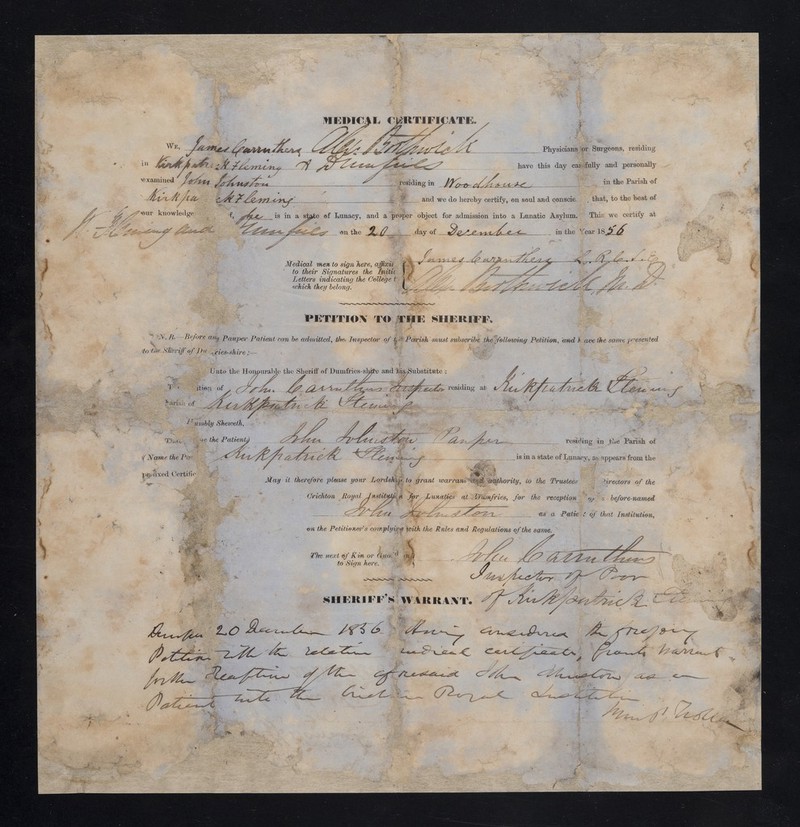 MEDICAL CERTIFICATE.
We, James Carruthers Alexr Bothwick Physicians or Surgeons, residing
in Kirkpatrick Fleming & Dumfries have this day carefully and personally
examined John Johnston residing in Woodhouse in the Parish of
Kirkpa ck Fleming and we do hereby certify, on soul and conscie that, to the best of
our knowledge he is in a state of Lunacy, and a proper object for admission into a Lunatic Asylum. This we certify at
K. Fleming and Dumfries on the 20 day of December in the Year 1856
Medical men to sign here, affixing
to their Signatures the Initial
Letters indicating the College t
which they belong.
James Carruthers L.R.C.S.E.
Alexr Bothwick M.D.
PETITION TO THE SHERIFF.
N.B.—Before any Pauper Patient can be admitted, the Inspector of the Parish must subscribe the following Petition, and have the same presented
to the Sheriff of Du ries-shire:—
Unto the Honourable the Sheriff of Dumfries-shire and his Substitute:
ition of John Carruthers Inspector residing at Kirkpatrick Fleming
Parish of Kirkpatrick Fleming
Humbly Sheweth,
That the Patient John Johnston Pauper residing in the Parish of
(Name the Pa Kirkpatrick Fleming is in a state of Lunacy, as appears from the
prefixed Certific
May it therefore please your Lordship to grant warrant and authority, to the Trustees Directors of the
Crichton Royal Institution for Lunatics at Dumfries, for the reception of before-named
John Johnston as a Patient of that Institution,
on the Petitioner's complying with the Rules and Regulations of the same.
The next of Kin or
to Sign here.
John Carruthers
Inspector of Poor
of Kirkpatrick Fleming
SHERIFF'S WARRANT.
Dumfries 20 December 1856 Having considered the foregoing
Petition with the relative medical certificate, Grants Warrant
for the Reception of the aforesaid John Johnston as a
Patient into the Crichton Royal Institution